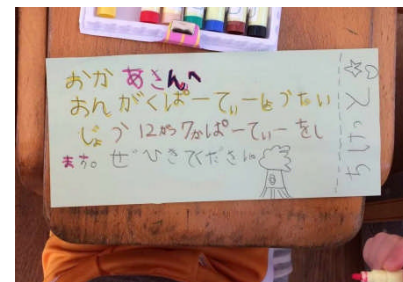 おかあさんへ
おんがくぱーてぃーしょうたい
じょう 12がつ7かぱーてぃーをし
ます。ぜひきてください